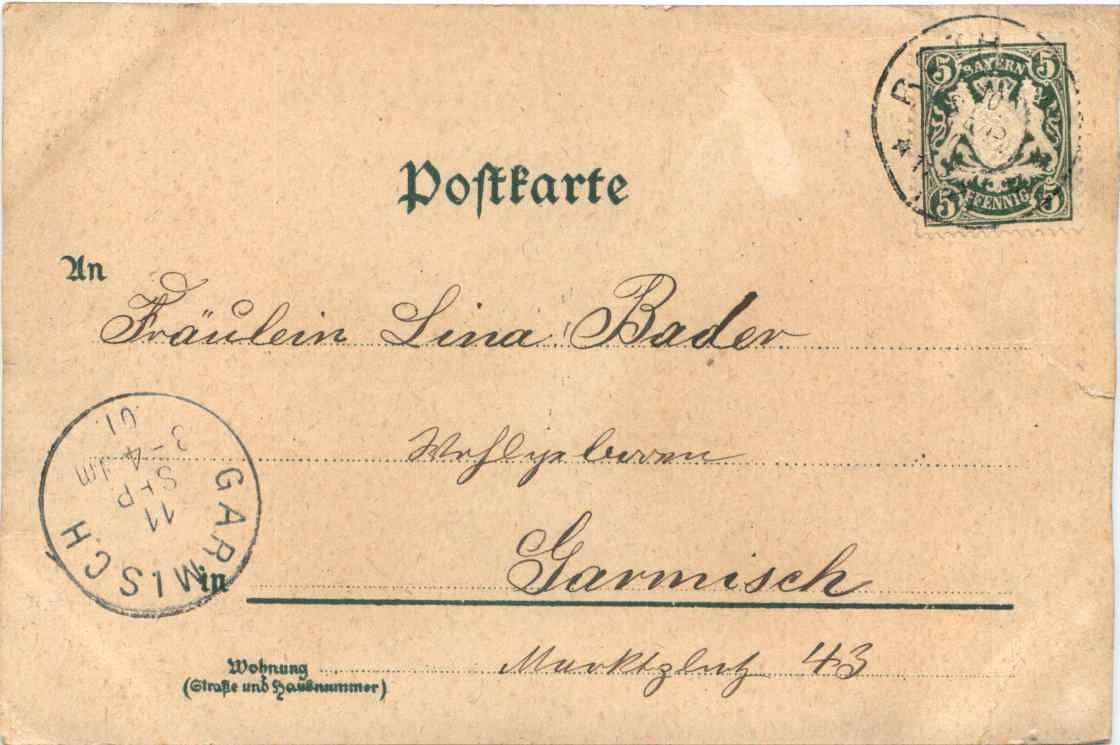 ROTH
5 BAYERN 5
5 PFENNIG 5
Postkarte
An
Fräulein Lina Bader
Wohlgeboren
GARMISCH
11
SEP.
3-4 Nm
01
in Garmisch
Wohnung Marktplatz 43
(Straße und Hausnummer)